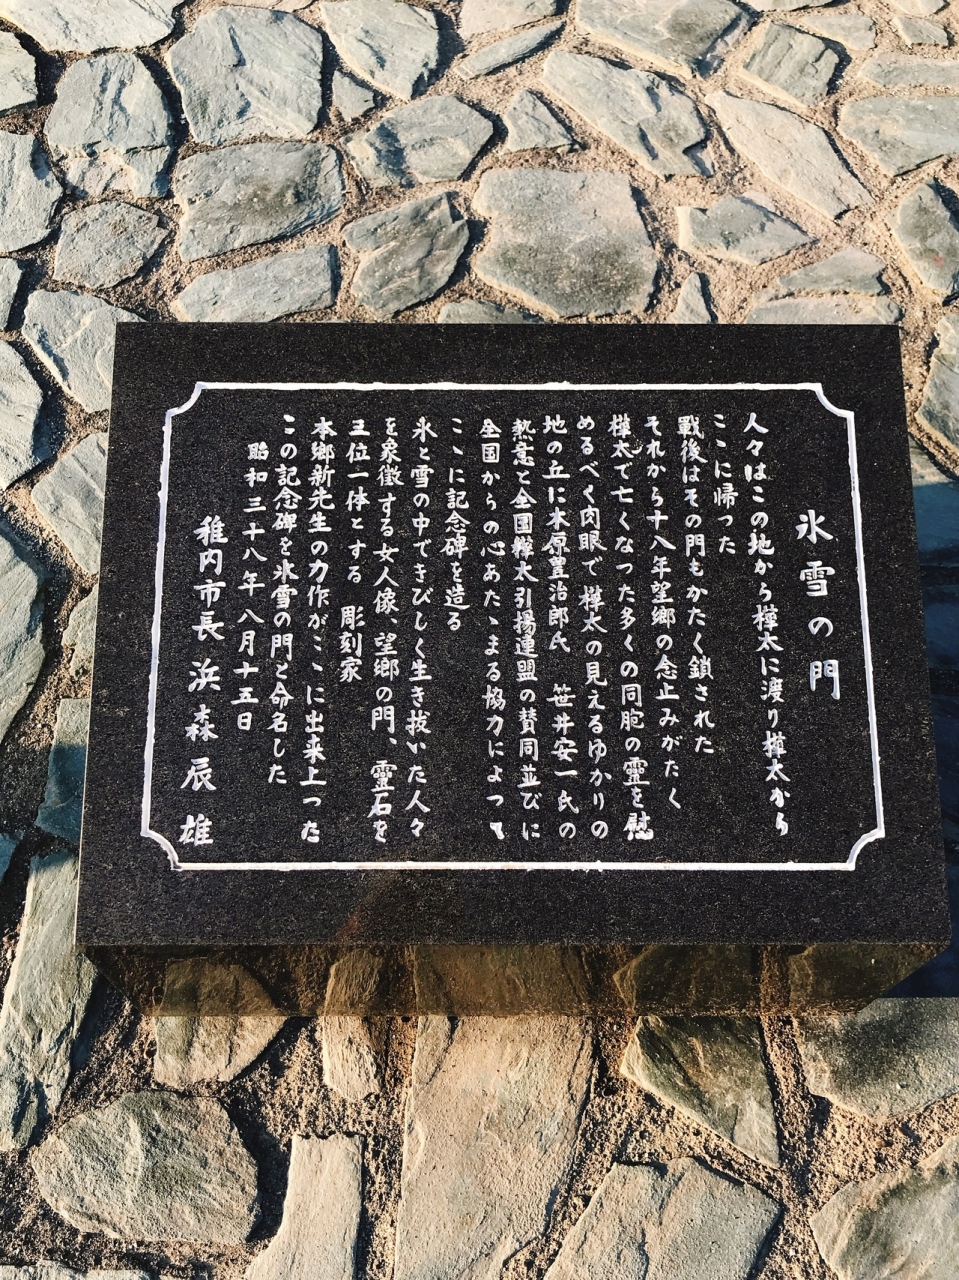 氷雪の門
人々はこの地から樺太に渡り樺太から
ここに帰った
戦後はその門もかたく鎖された
それから十八年望郷の念止みがたく
樺太で亡くなった多くの同胞の霊を慰
めるべく肉眼で樺太の見えるゆかりの
地の丘に本原豊治郎氏 笹井安一氏の
熱意と全国樺太引揚連盟の賛同並びに
全国からの心あたゝまる協力によって
ここに記念碑を造る
氷と雪の中できびしく生き抜いた人々
を象徴する女人像、望郷の門、霊石を
三位一体とする 彫刻家
本郷新先生の力作がここに出来上った
この記念碑を氷雪の門と命名した
昭和三十八年八月十五日
稚内市長 浜森辰雄